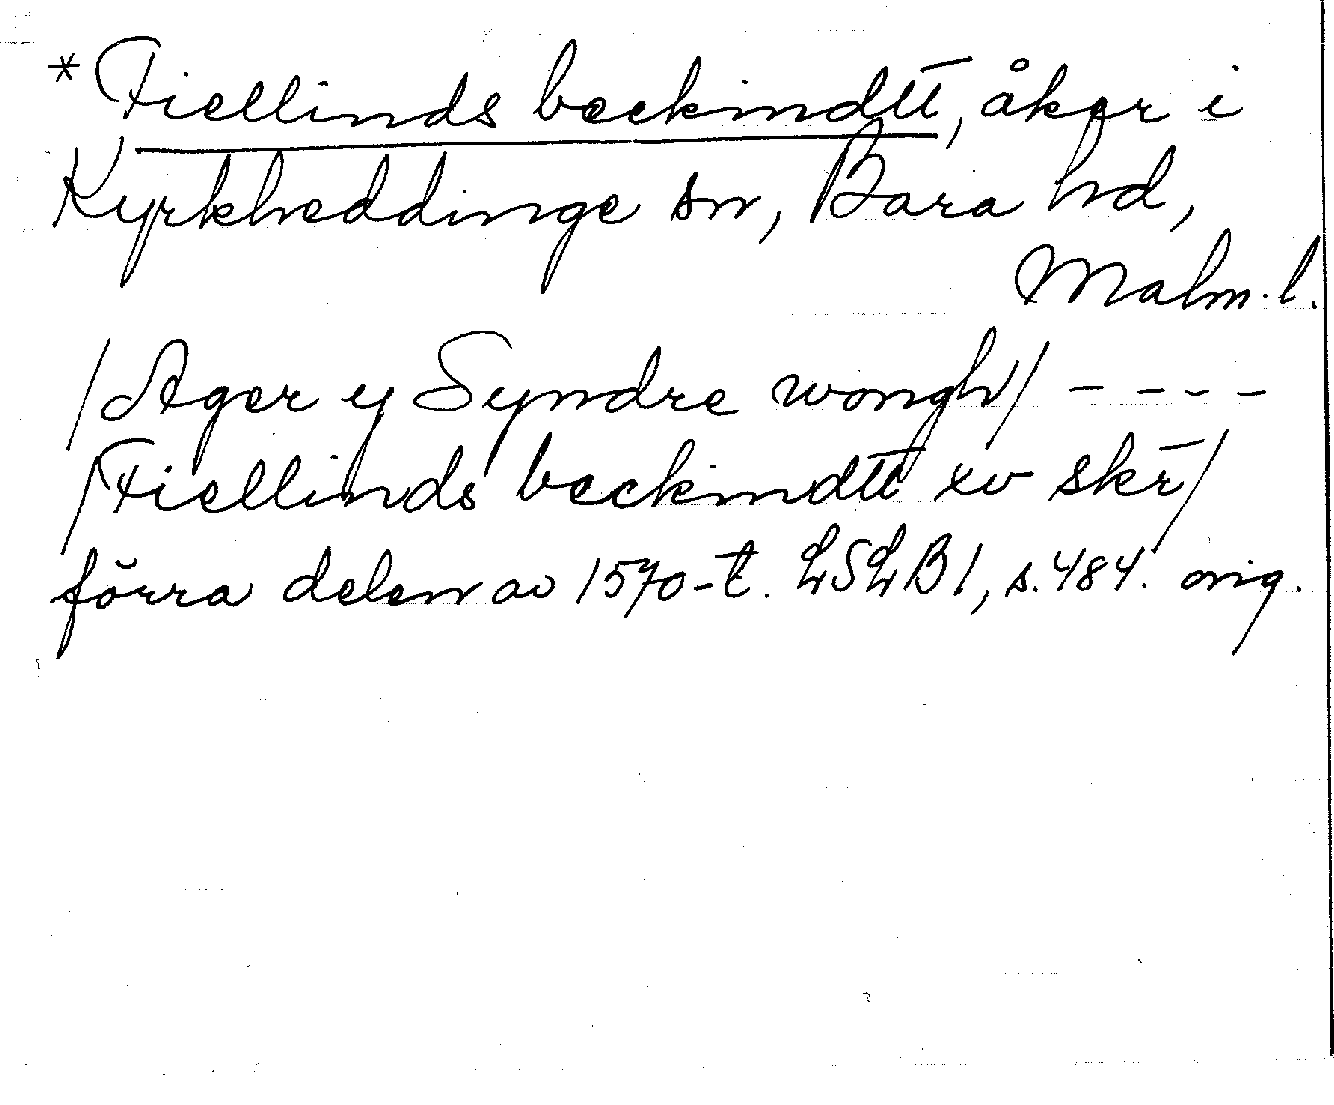 * Fiellinds beckindtt̄, åker i
Kyrkheddinge sn, Bara hd,
Malm. l.
/Ager y Syndre wongh/ - - - -
/Fiellinds beckindtt̄ xv skr̄/
förra delen av 1570-t. LSLB 1, s. 484. orig.